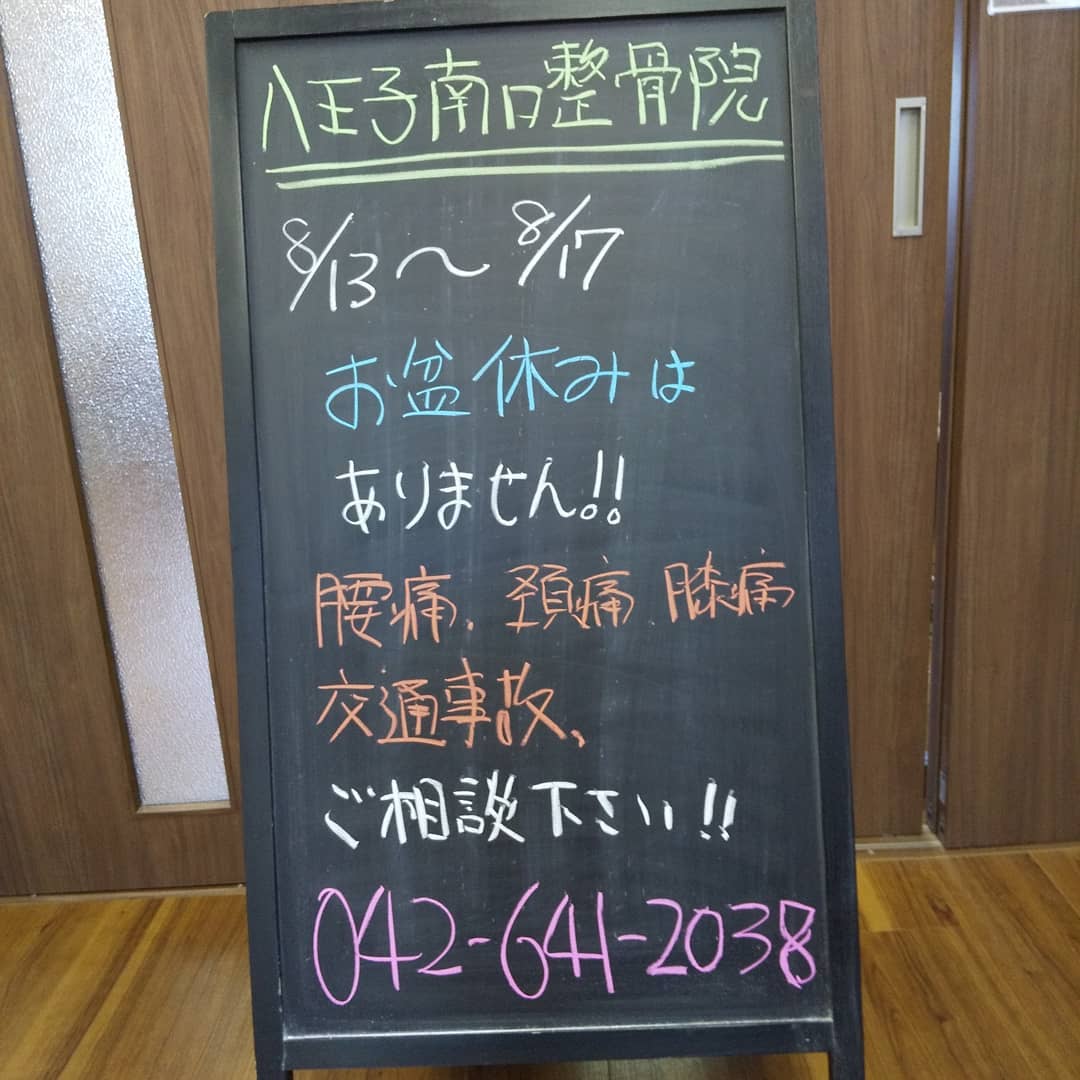 八王子南口整骨院
8/13〜8/17
お盆休みは
ありません!!
腰痛、頚痛 膝痛
交通事故、
ご相談下さい!!
042-641-2038